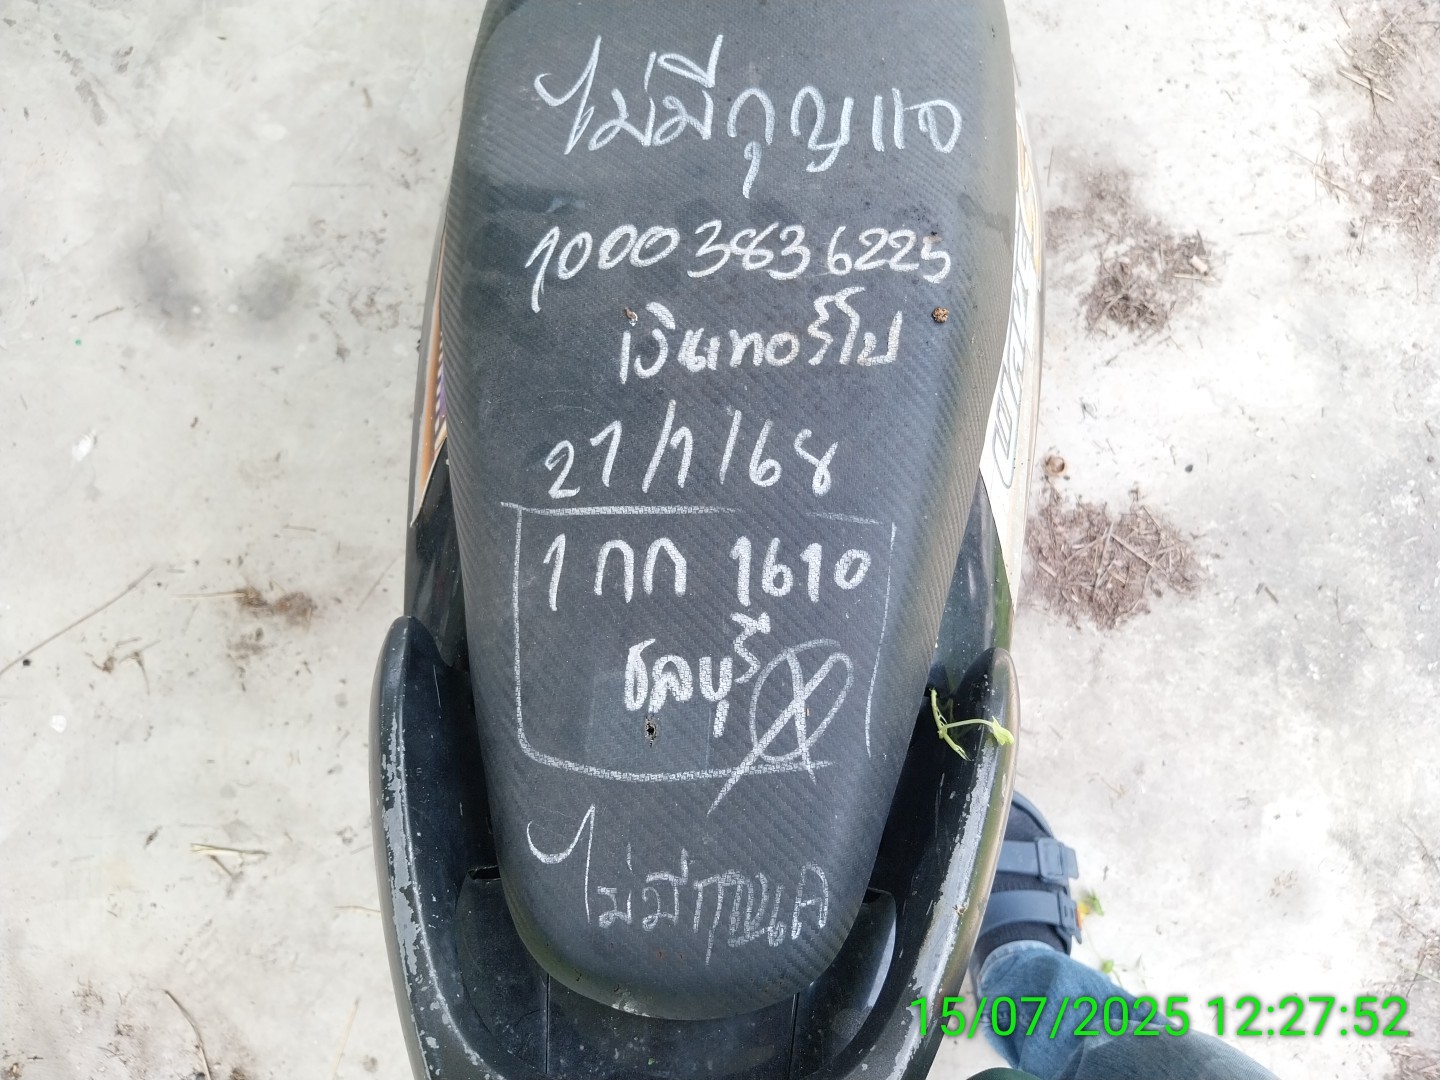 ไม่มีกุญแจ
10003836225
เงินเทอร์โบ
27/1/68
1 กก 1610
ชลบุรี
ไม่มีกุญแจ
15/07/2025 12:27:52